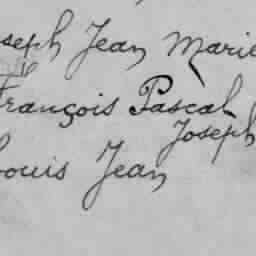 seph Jean Marie
François Pascal
Joseph
Louis Jean